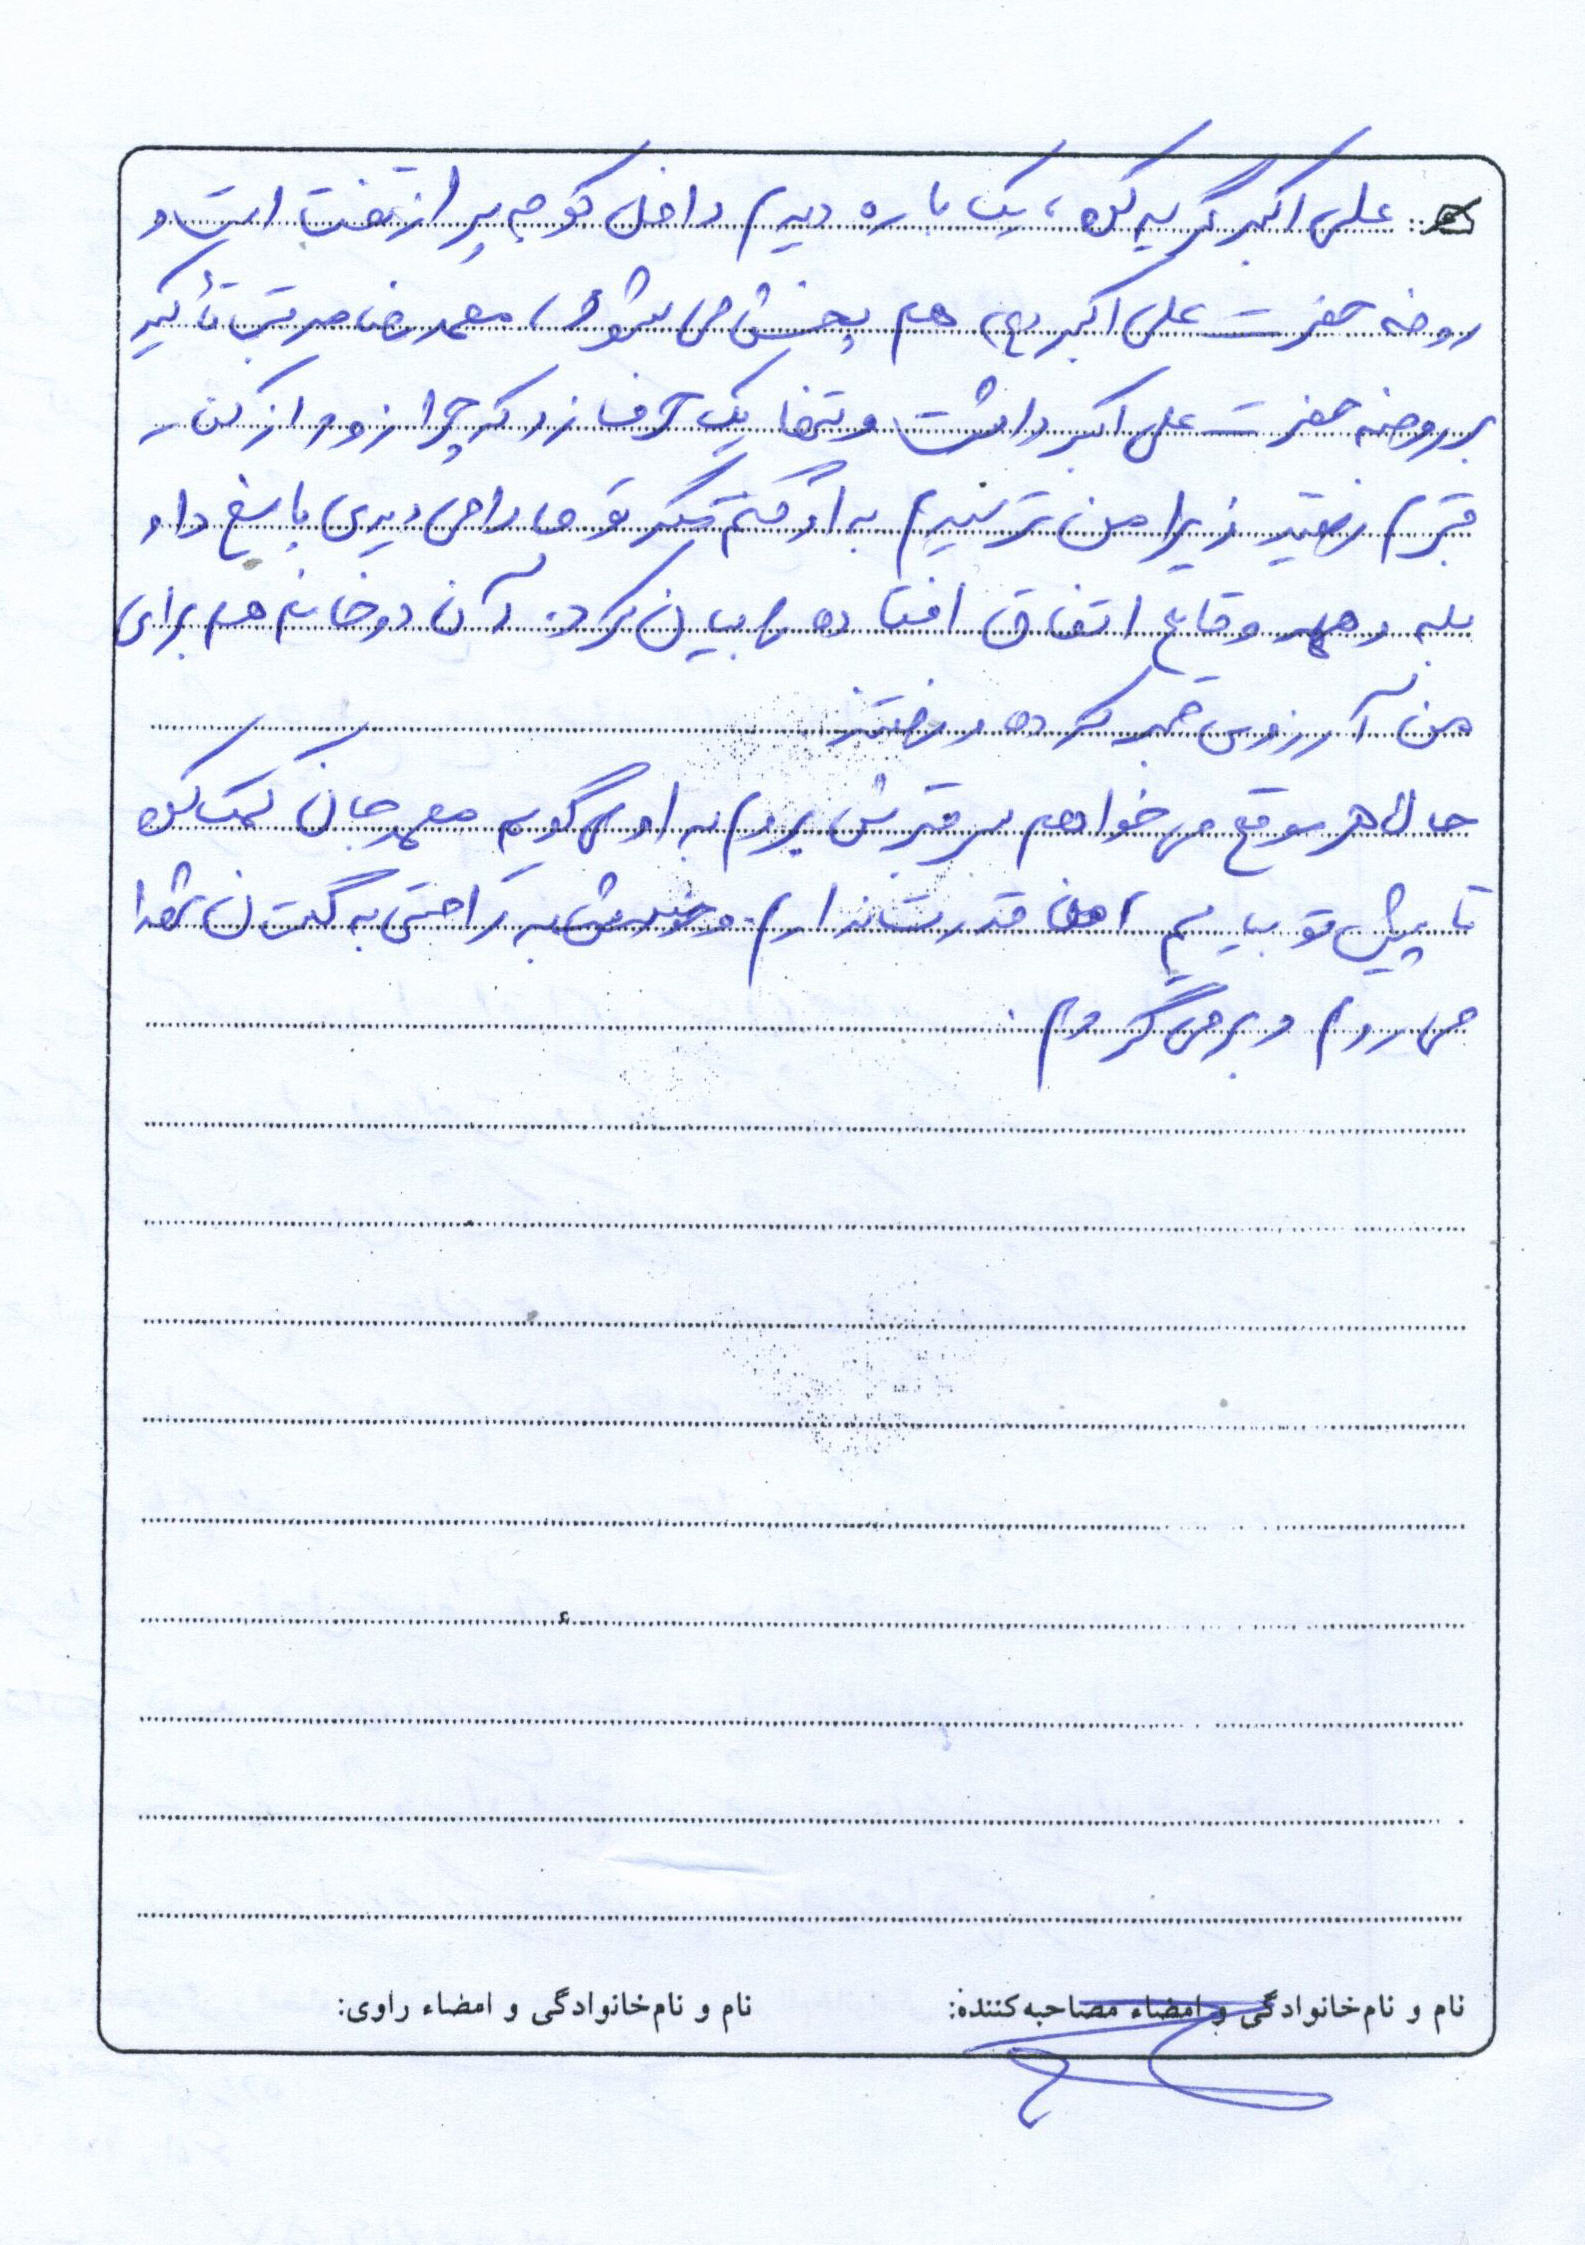 علی اکبر گریه کن، یک باره دیدم داخل کوچه پر از نفت است و
روضه حضرت علی اکبر (ع) هم پخش می شود، محمدرضا مرتب تأکید
بر روضه حضرت علی اکبر داشت و تنها یک حرف زد که چرا زود از کنار
قبرم رفتید زیرا من ترسیدم به او گفتم مگر تو ما را می دیدی پاسخ داد
بله و همه وقایع اتفاق افتاده را بیان کرد. آن دو خانم هم برای
من آرزوی صبر کرده و رفتند
حالا هر موقع می خواهم سر قبرش بروم به او می گویم محمد جان کمک کن
تا پیش تو بیایم اصلا قدرت ندارم و خودش به راحتی به گلستان شهدا
می روم و برمی گردم.
نام و نام‌خانوادگی و امضاء مصاحبه‌کننده:
نام و نام‌خانوادگی و امضاء راوی: